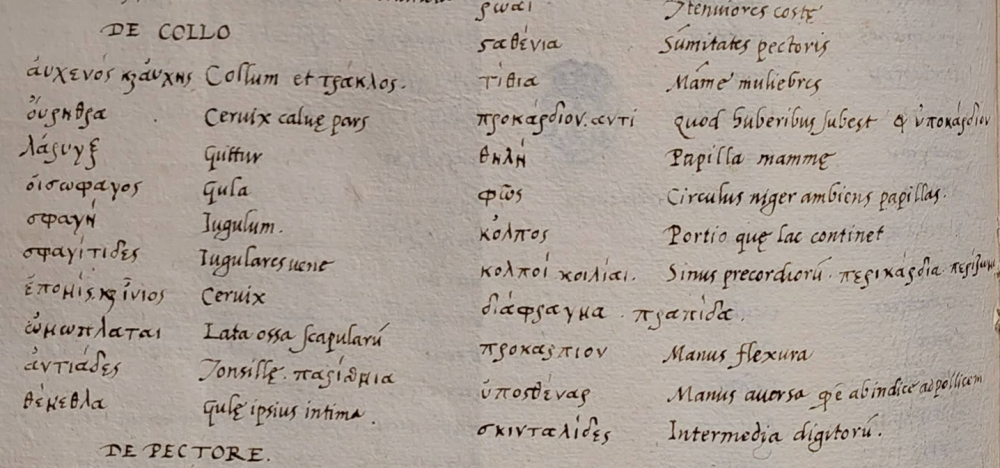 DE COLLO
ἀυχενός κ ἀυχης Collum et τράκλος.
ὄυρηθρα Ceruix caluę pars
λάρυγξ Guttur
ὀισωφαγος Gula
σφαγή Iugulum.
σφαγίτιδες Iugulares uene
ἔπομίς. κ ἴνιος Ceruix
ὠμωπλαται Lata ossa scapularū
ἀντιάδες Tonsillę. παρίσθμια
θέμεθλα Gulę ipsius intima.
DE PECTORE.
ρωαι Tenuiores costę
ςαθένια Sūmitates pectoris
τίθια Māme muliebres
προκάρδιον. αντι quod huberibus subest & ὑποκάρδιον
θηλή Papilla mammę
φῶς Circulus niger ambiens papillas.
κόλπος Portio quę lac continet
κολποί κοιλίαι. Sinus precordiorū. περικάρδια
διάφραγμα. πραπίδα.
προκαρπιον Manus flexura
ὑποθέναρ Manus auersa q̄e ab indice ad pollicem
σκινταλίδες Intermedia digitorū.